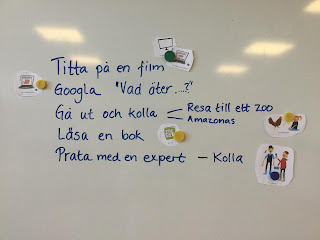 Titta på en film
Googla "Vad äter...?"
Gå ut och kolla
Resa till ett zoo
Amazonas
Läsa en bok
Prata med en expert - Kolla